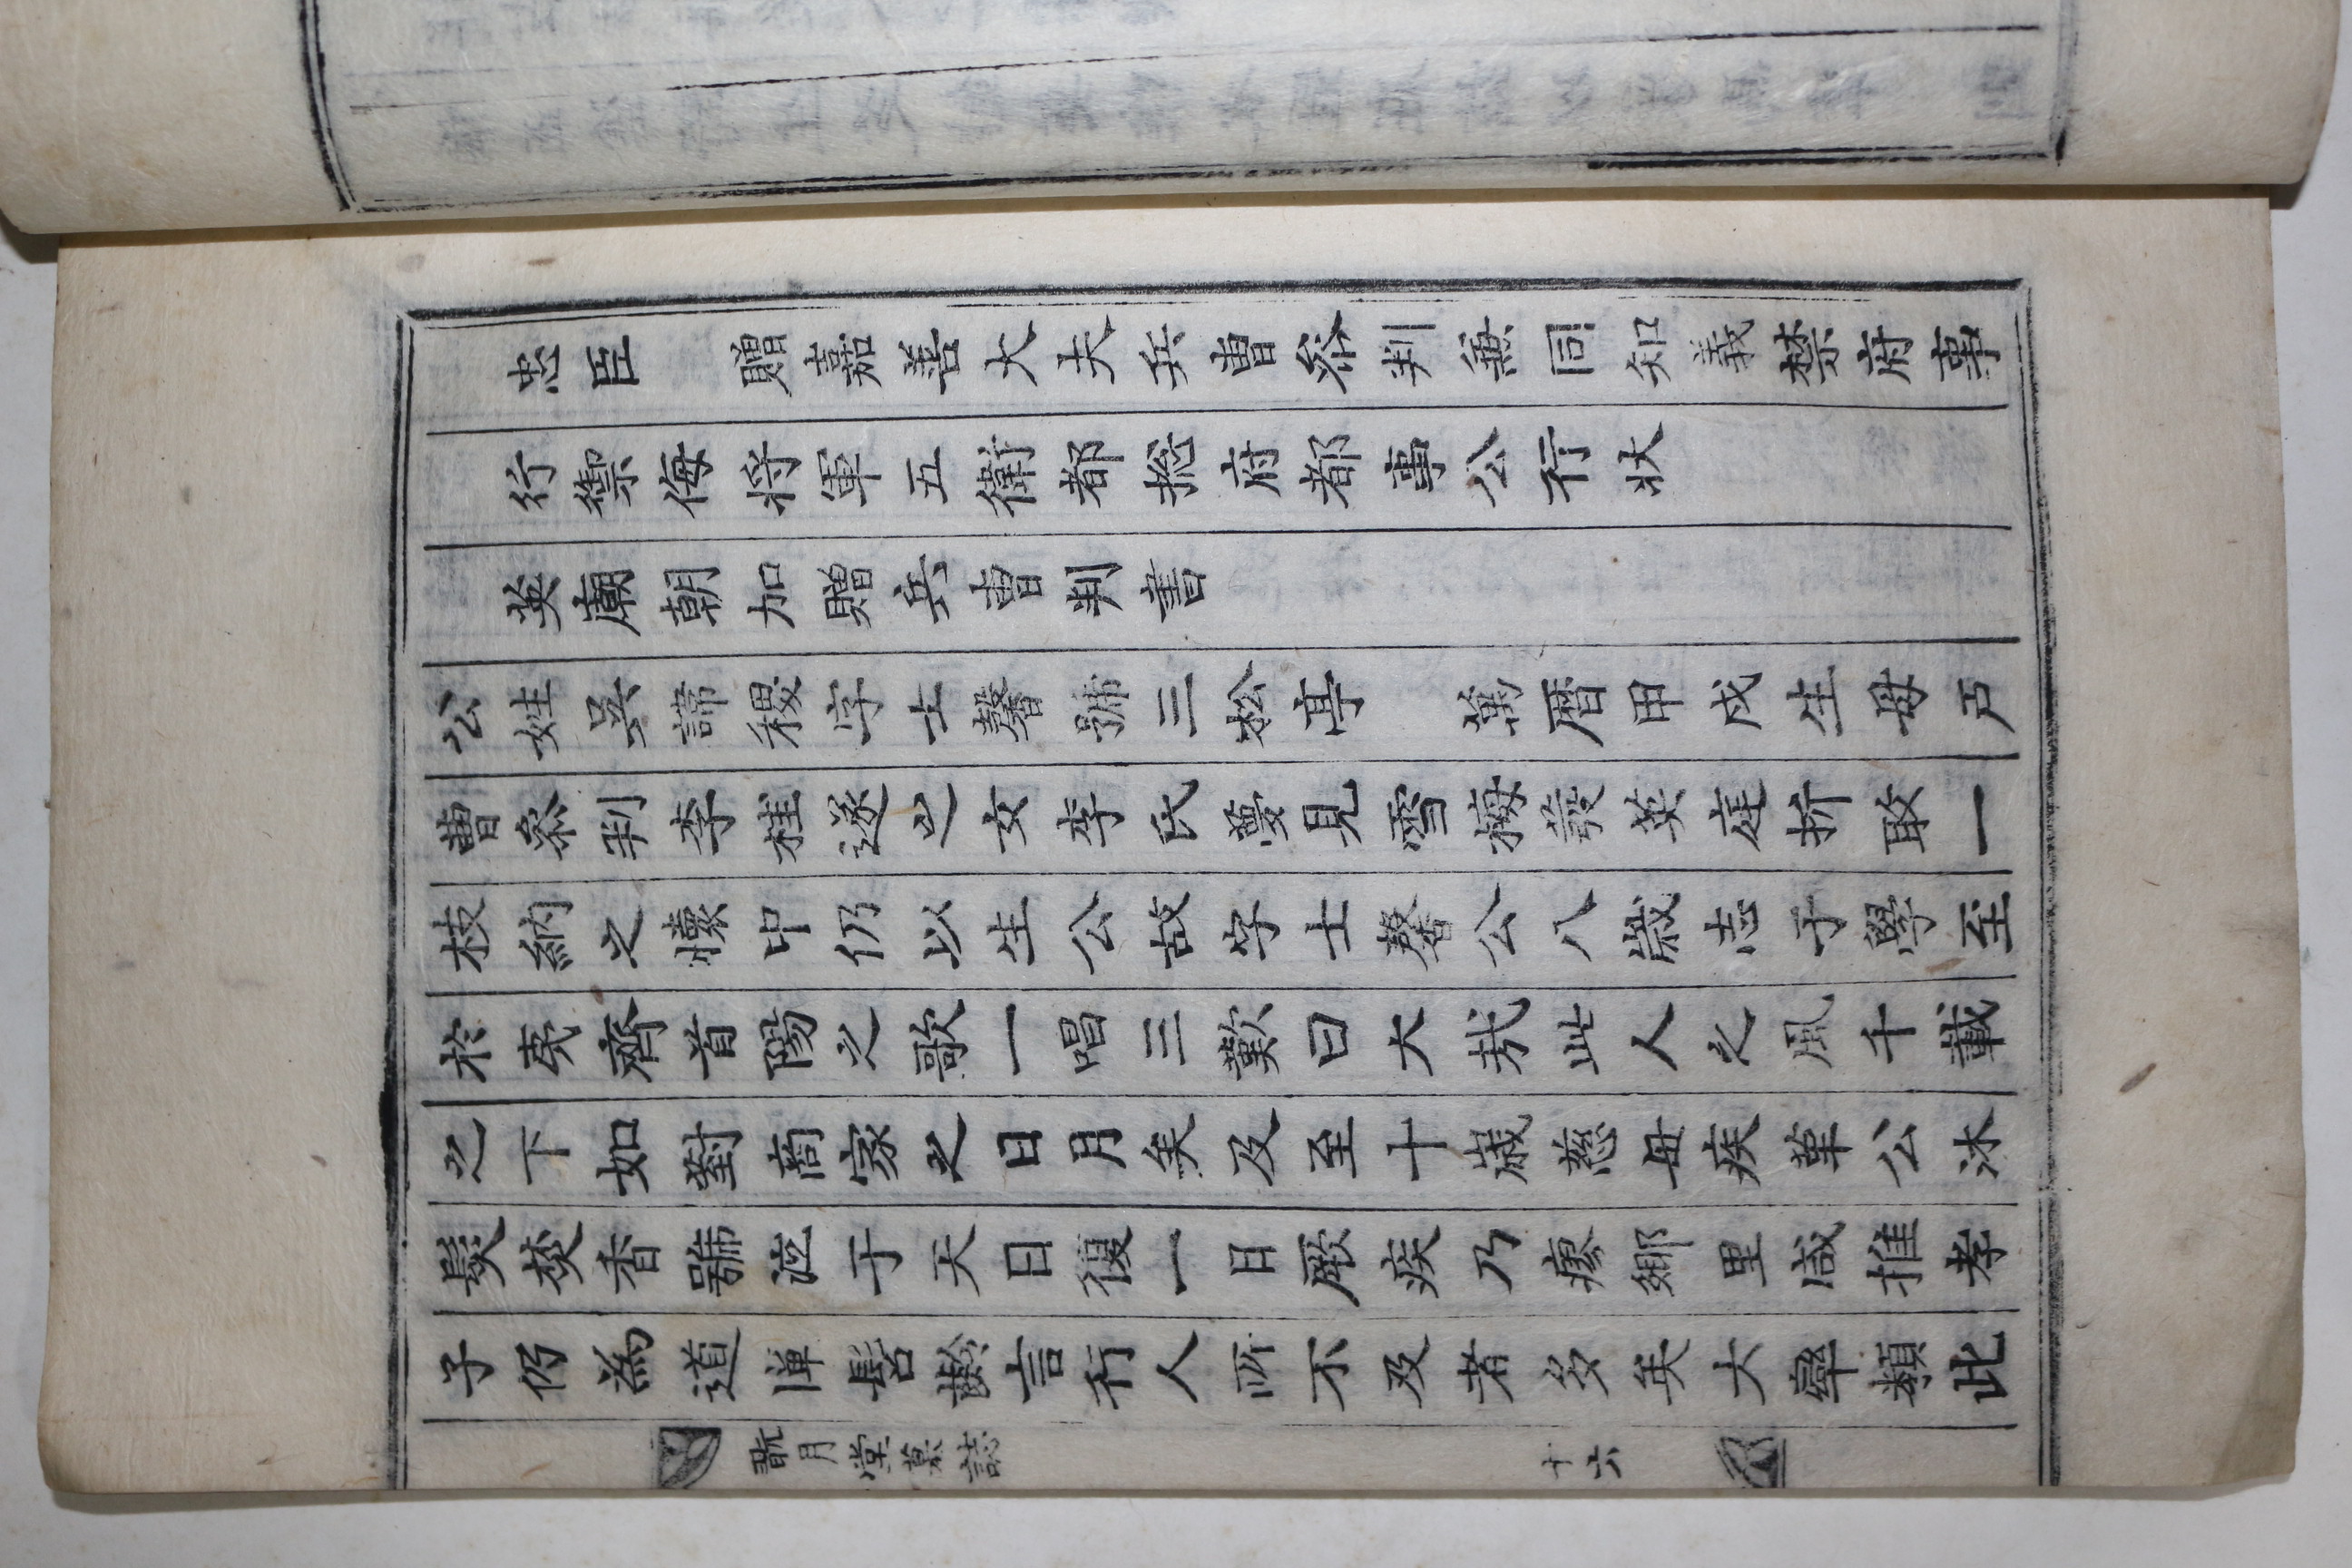 忠臣 贈嘉善大夫兵曹叅判兼同知義禁府事
行禦侮将軍五衛都捴府都事公行状
英廟朝加贈兵曹判書
公姓吳諱稷字士馨號三松亭 萬曆甲戌生母戶
曹叅判李桂遂之女李氏夢見雪梅發英庭折敢一
枝納之懷中仍以生公故字士馨公八歲志于學至
於夷齊首陽之歌一唱三歎曰大㢤此人之風千載
之下如對商家之日月矣及至十歲慈母疾革公沐
髮焚香號泣于天日復一日厥疾乃瘳鄉里咸推孝
子仍為道庫髫齡言行人所不及者多矣大率類此
翫月堂墓誌
十六